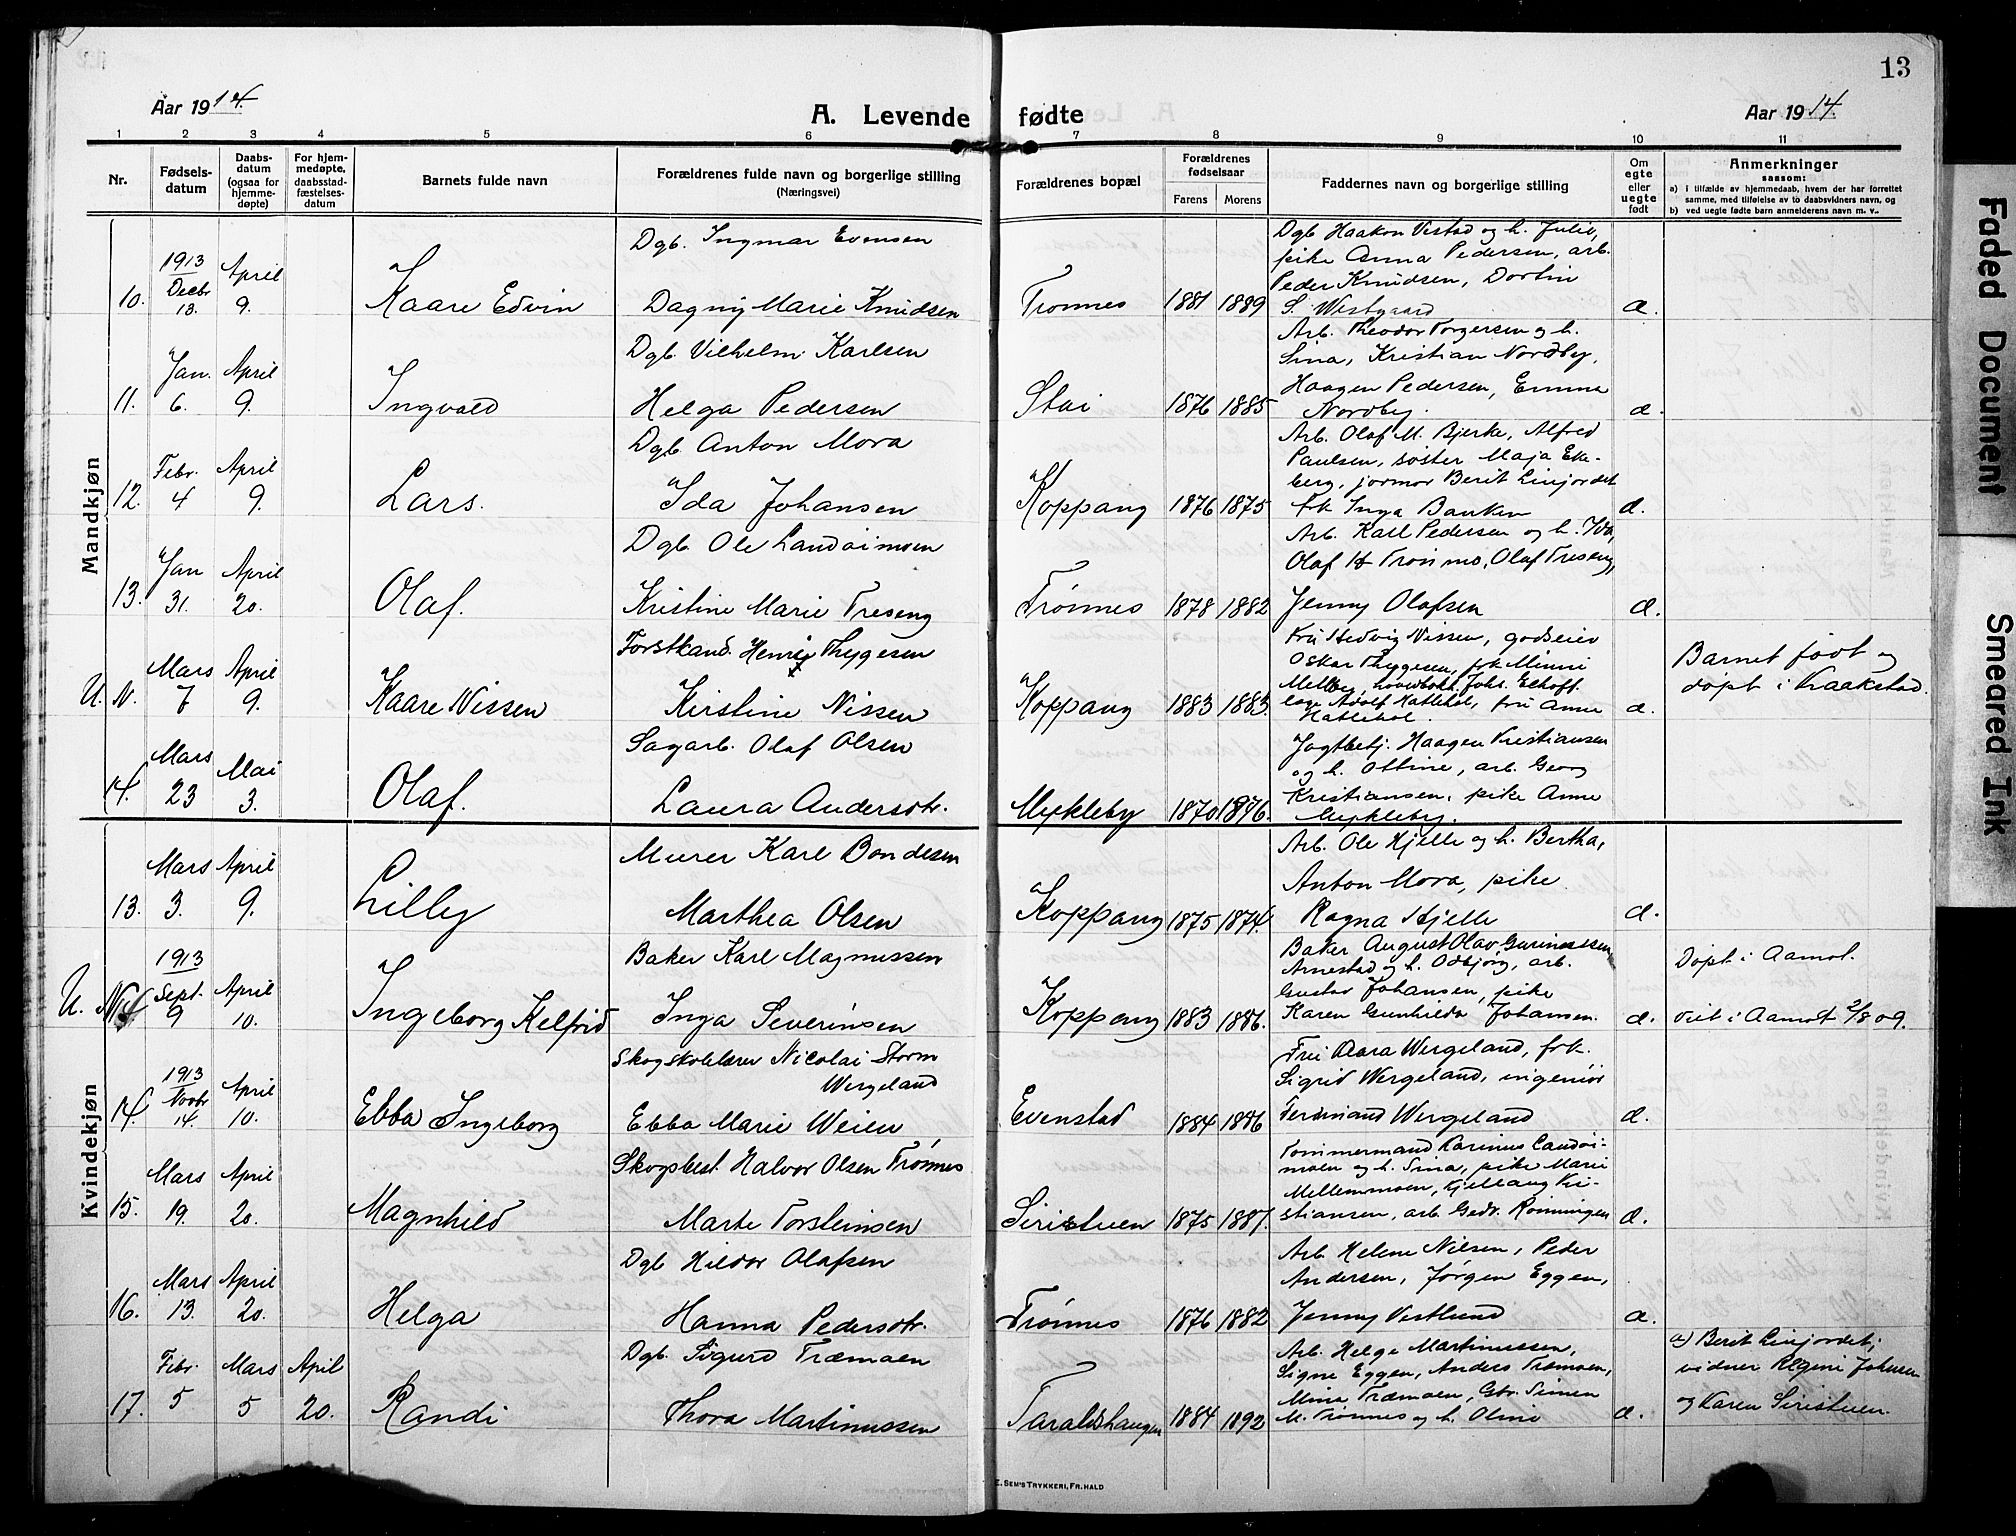 13
Aar 1914.
A. Levende fødte
Aar 1914.
1 2 3 4 5 6 7 8 9 10 11
Nr.
Fødsels-
datum
Daabs-
datum
(ogsaa for
hjemme-
døpte)
For hjem-
medøpte,
daabsstad-
fæstelses-
datum
Barnets fulde navn
Forældrenes fulde navn og borgerlige stilling
(Næringsvei)
Forældrenes bopæl
Forældrenes
fødselsaar
Farens
Morens
Faddernes navn og borgerlige stilling
Om
egte
eller
uegte
født
Anmerkninger
saasom:
a) i tilfælde av hjemmedaab, hvem der har forrettet
samme, med tilføielse av to daabsvidners navn, og
b) ved uegte fødte barn anmelderens navn m. v.
Mandkjøn
10. 1913 Decbr 13. April 9. Kaare Edvin
Dgb. Ingmar Evensen
Dagny Marie Knudsen
Trønnes 1881 1889
Dgb Haakon Vestad og h. Julie,
pike Anna Pedersen, arb.
Peder Knudsen, Dortin
S. Westgaard
æ.
11. Jan. 6. April 9. Ingvald
Dgb. Vilhelm Karlsen
Helga Pedersen
Stai 1876 1885
Arb. Theodor Torgersen og h.
Sina, Kristian Nordby,
Haagen Pedersen, Emma
Nordby.
æ.
12. Febr. 4 April 9. Lars.
Dgb Anton Mora
Ida Johansen
Koppang 1876 1875
Arb. Olaf M. Bjerke, Alfred
Paulsen, søster Maja Eke-
berg, jormor Berit Linjordet
frk Inga Banken
æ.
13. Jan 31. April 20. Olaf.
Dgb Ole Landaimoen
Kristine Marie Treseng
Trønnes 1878 1882
Arb. Karl Pedersen og h. Ida,
Olaf H Trønmo, Olaf Treseng,
Jenny Olafsen
æ.
U. N. Mars 7 April 9. Kaare Nissen
Forstkand. Henrig Thygesen
Kirstine Nissen
Koppang 1883 1883.
Fru Hedvig Nissen, godseier
Oskar Thygesen, frk Minni
Melby, Johs. Eckoff,
Adolf Hatlehol, fru Anne
Hatlehol.
æ.
Barnet født og
døpt i Kraakstad.
14. Mars 23 Mai 3. Olaf.
Sagarb. Olaf Olsen
Laura Andersdtr.
Mykleby 1870 1876.
Jagtbetj. Haagen Kristiansen
og h. Ottine, arb. Georg
Kristiansen, pike Anne
Mykleby.
Kvindekjøn
13. Mars 3. April 9. Lilly
Murer Karl Bondesen
Marthea Olsen
Koppang 1875 1874.
Arb. Ole Hjelle og h. Bertha,
Anton Mora, pike
Ragna Hjelle
æ.
U. N. 1913 Sept. 9 April 10. Ingeborg Kelfrid
Baker Karl Magnussen
Inga Severinsen
Koppang 1883 1886.
Baker August Olav
Arnestad og h. Odbjørg, arb.
Gustav Johansen, pike
Karen Gunhilda Johansen.
æ.
Døpt i Aamot.
Viet i Aamot 2/8 09.
14. 1913 Novbr 14. April 10. Ebba Ingeborg
Skogskolelærer Nicolai Storm
Wergeland
Ebba Marie Weien
Evenstad 1884 1886
Fru Aara Wergeland, frk.
Sigrid Wergeland, ingeniør
Ferdinand Wergeland
æ.
15. Mars 19. April 20. Magnhild
Skogsbest. Halvor Olsen Trønnes
Marte Torsteinsen
Siristuen 1875 1887.
Tømmermand Karinus Landai-
moen og h. Sina, pike Marie
Mellemmoen, Kjellaug Kri-
stiansen, arb. Gedv. Rønningen
æ.
16. Mars 13. April 20. Helga
Dgb Hildor Olafsen
Hanna Pedersdtr.
Trønnes 1876 1882
Arb. Helene Nilsen, Peder
Andersen, Jørgen Eggen,
Jenny Vestlund
æ.
17. Febr. 5 Mars 5 April 20. Randi
Dgb. Sigurd Træmoen
Thora Martinussen
Taraldshaugen 1884 1892
Arb. Helge Martinussen,
Signe Eggen, Anders Træmoen,
Mina Træmoen, Gbr. Simen
M. Trønnes og h. Oline
æ.
a) Berit Linjordet;
vidner Regine Johnsen
og Karen Siristuen.
E. SEM'S TRYKKERI, FR.HALD
Faded Document
Smeared Ink